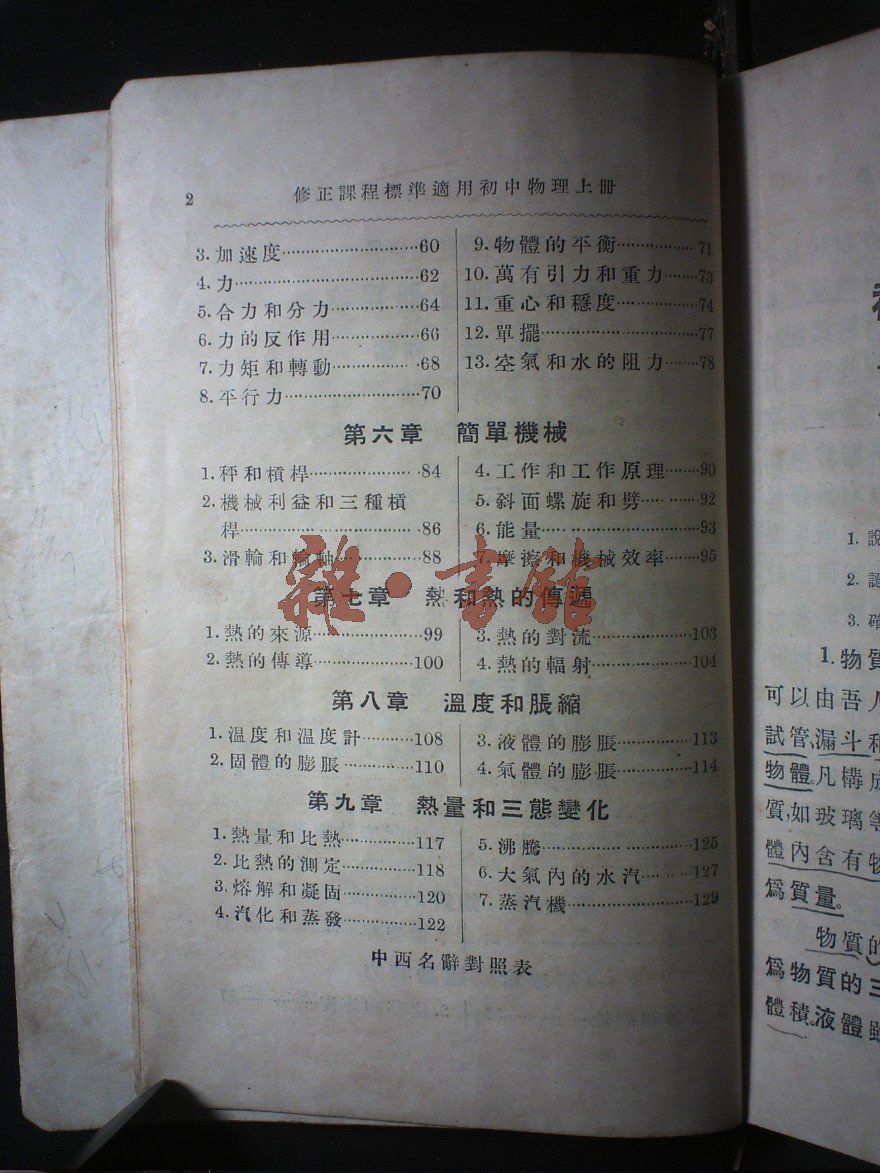 2
修正課程標準適用初中物理上冊
3.加速度………60
4.力………62
5.合力和分力………64
6.力的反作用………66
7.力矩和轉動………68
8.平行力………70
9.物體的平衡………71
10.萬有引力和重力………73
11.重心和穩度………74
12.單擺………77
13.空氣和水的阻力………78
第六章 簡單機械
1.秤和槓桿………84
2.機械利益和三種槓
桿………86
3.滑輪和輪軸………88
4.工作和工作原理………90
5.斜面螺旋和劈………92
6.能量………93
7.摩擦和機械效率………95
第七章 熱和熱的傳遞
1.熱的來源………99
2.熱的傳導………100
3.熱的對流………103
4.熱的輻射………104
第八章 溫度和脹縮
1.温度和温度計………108
2.固體的膨脹………110
3.液體的膨脹………113
4.氣體的膨脹………114
第九章 熱量和三態變化
1.熱量和比熱………117
2.比熱的測定………118
3.熔解和凝固………120
4.汽化和蒸發………122
5.沸騰………125
6.大氣內的水汽………127
7.蒸汽機………129
中西名辭對照表
雜·書館
1.說
2.認
3.確
1.物質
可以由吾人
試管、漏斗和
物體。凡構成
質,如玻璃等
體內含有物
爲質量。
物質的
爲物質的三
體積。液體雖